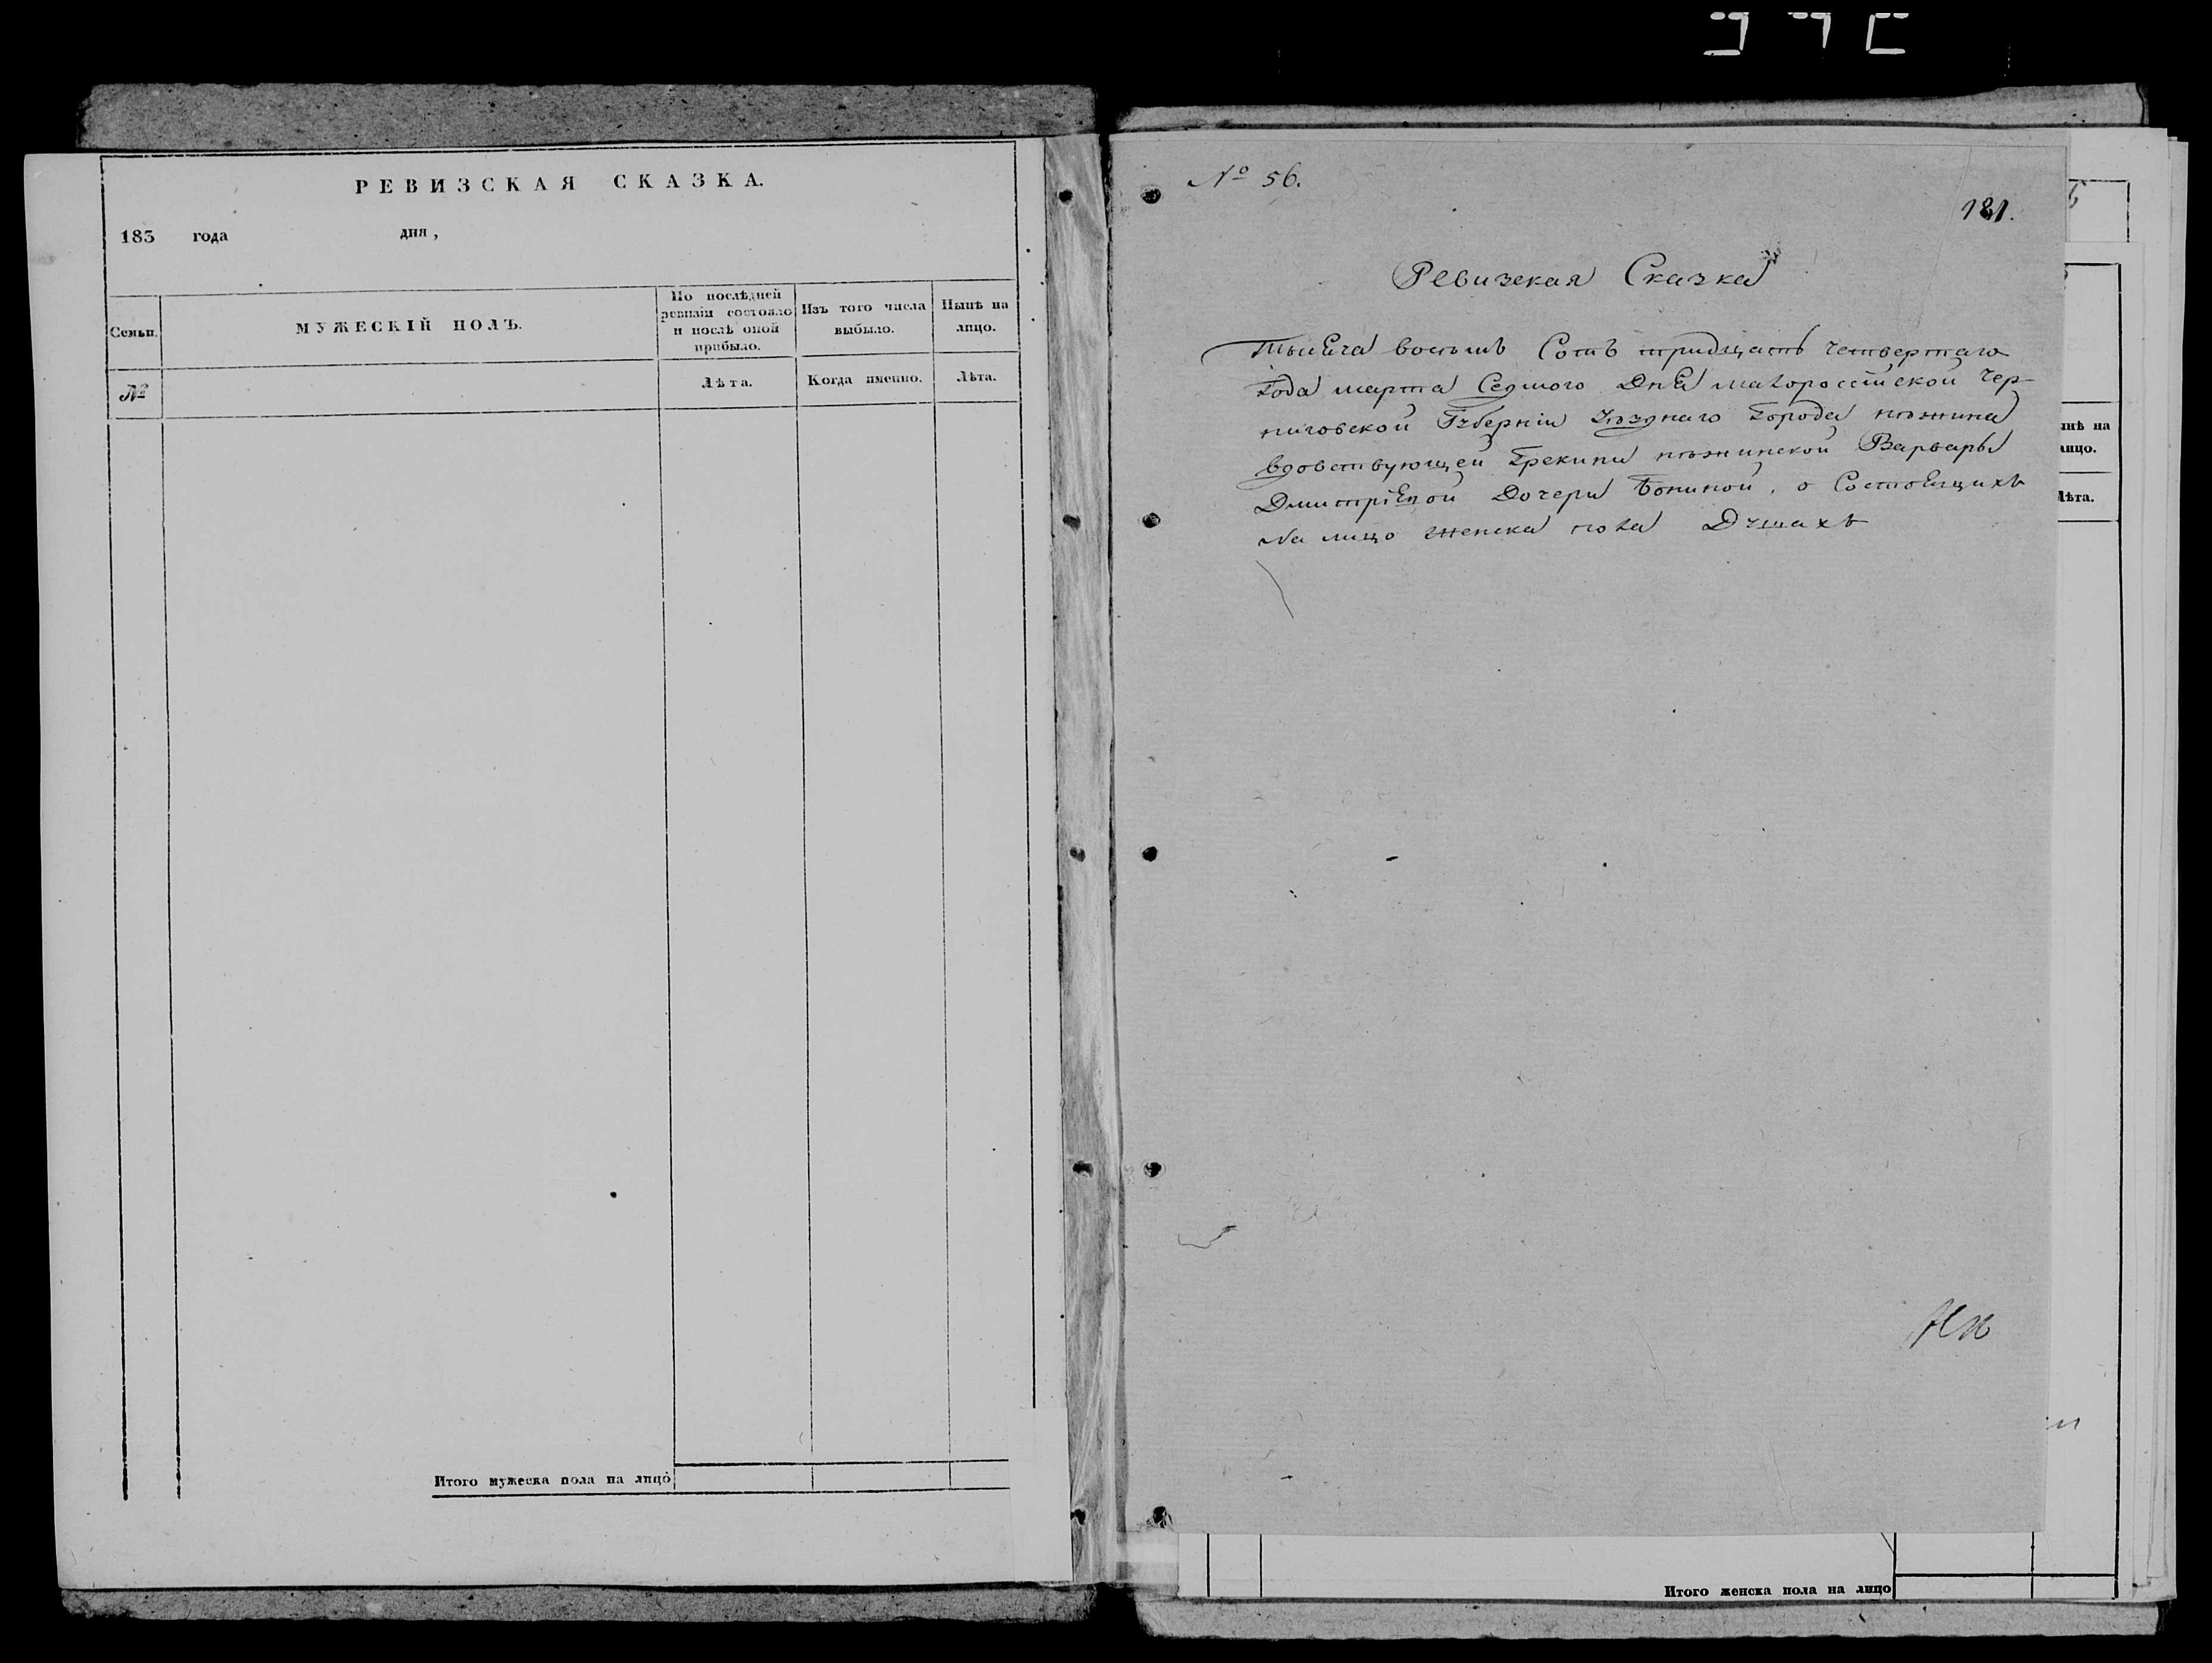 РЕВИЗСКАЯ СКАЗКА.
183 года дня,
Семьи.
МУЖЕСКІЙ ПОЛЪ.
По послѣдней
ревизіи состояло
и послѣ оной
прибыло.
Изъ того числа
выбыло.
Нынѣ на
лицо.
№
Лѣта.
Когда именно.
Лѣта.
Итого мужеска пола на лицо
№ 56.
181.
Ревизская Сказка
Тысяча восемь Сотъ тридцать четвертаго
Года марта Седмого Дня малороссійской Чер-
ниговской Губерніи уѣзднаго Города нѣжина
вдовствующей Грекини нѣжинской Варвары
Дмитріевой Дочери Бониной, о Состоящихъ
На лицо женска пола Душахъ
нѣ на
лицо.
Лѣта.
Итого женска пола на лицо